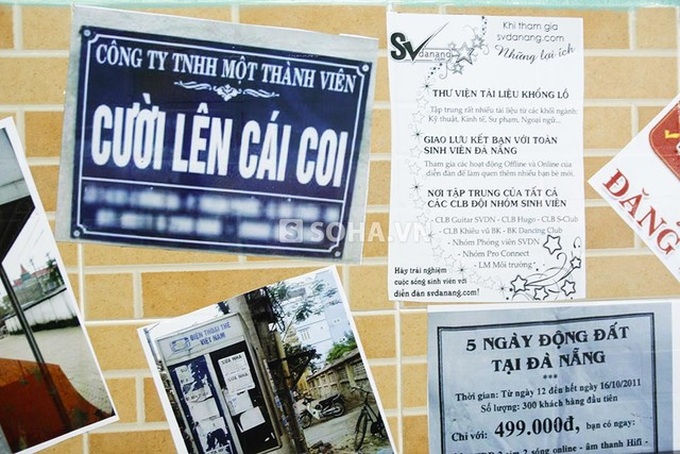 CÔNG TY TNHH MỘT THÀNH VIÊN
CƯỜI LÊN CÁI COI
SOHA.VN
SV
danang
.com
Khi tham gia
svdanang.com
Những lợi ích
THƯ VIỆN TÀI LIỆU KHỔNG LỒ
Tập trung rất nhiều tài liệu từ các khối ngành:
Kỹ thuật, Kinh tế, Sư phạm, Ngoại ngữ...
GIAO LƯU KẾT BẠN VỚI TOÀN
SINH VIÊN ĐÀ NẴNG
Tham gia các hoạt động Offline và Online của
diễn đàn để làm quen thêm nhiều bạn bè mới.
NƠI TẬP TRUNG CỦA TẤT CẢ
CÁC CLB ĐỘI NHÓM SINH VIÊN
- CLB Guitar SVDN - CLB Hugo - CLB S-Club
- CLB Khiêu vũ BK - BK Dancing Club
- Nhóm Phóng viên SVDN
- Nhóm Pro Connect
- LM Môi trường
Hãy trải nghiệm
cuộc sống sinh viên với
diễn đàn svdanang.com!
ĐĂNG
ĐIỆN THOẠI THẺ
VIỆT NAM
5 NGÀY ĐỘNG ĐẤT
TẠI ĐÀ NẴNG
***
Thời gian: Từ ngày 12 đến hết ngày 16/10/2011
Số lượng: 300 khách hàng đầu tiên
Chỉ với: 499.000đ, bạn có ngay:
2 sim 2 sóng online - âm thanh Hifi -